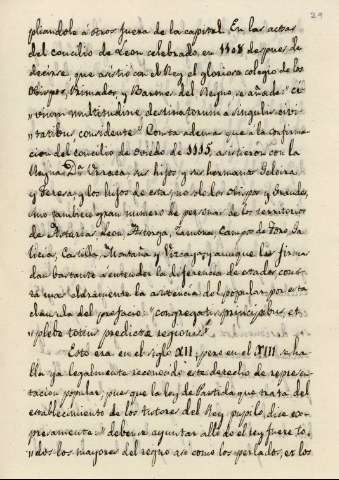 29
pliandole á otros fuera de la capital. En las actas
del concilio de Leon celebrado en 1108 despues de
decirse que asistió con el Rey el glorioso colegio de los
Obispos, Primados y Barones del Reyno, se añade "Ci
"vium multitudine, destinatorum a singulis civi-
tatibus considente". Consta ademas que á la confirma
cion del concilio de Oviedo de 1115, asistieron con la
Reyna Dª Urraca sus hijos y sus hermanas Geloira
y Teresa y los hijos de esta, no solo los Obispos y Grandes,
sino tambien gran numero de personas de los territorios
de Asturias, Leon, Astorga, Zamora, Campos de Toro, Ga
licia, Castilla, Montaña y Vizcaya, y aunque las firmas
dan bastante a entender la diferencia de estados, cons-
ta mas claramente la asistencia del popular por esta
clausula del prefacio: "congregatis principibus, et
"plebe totius predicte regionis."
Esto era en el siglo XII, pero en el XIII se ha-
lla ya legalmente reconocido este derecho de represen
tacion popular, pues que la ley de Partida que trata del
establecimiento de los tutores del Rey pupilo, dice ex-
presamente: "debense ayuntar alli do el rey fuere to-
"dos los mayores del regno asi como los perlados, et los